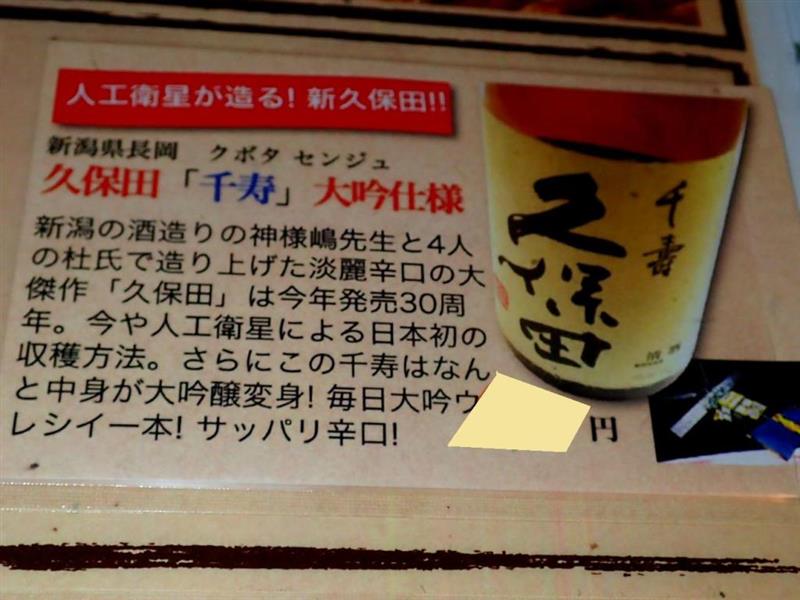 人工衛星が造る! 新久保田!!
新潟県長岡 クボタ センジュ
久保田「千寿」大吟仕様
新潟の酒造りの神様嶋先生と4人
の杜氏で造り上げた淡麗辛口の大
傑作「久保田」は今年発売30周
年。今や人工衛星による日本初の
収穫方法。さらにこの千寿はなん
と中身が大吟醸変身! 毎日大吟ウ
レシイ一本! サッパリ辛口!
円
千壽
久保田
清酒